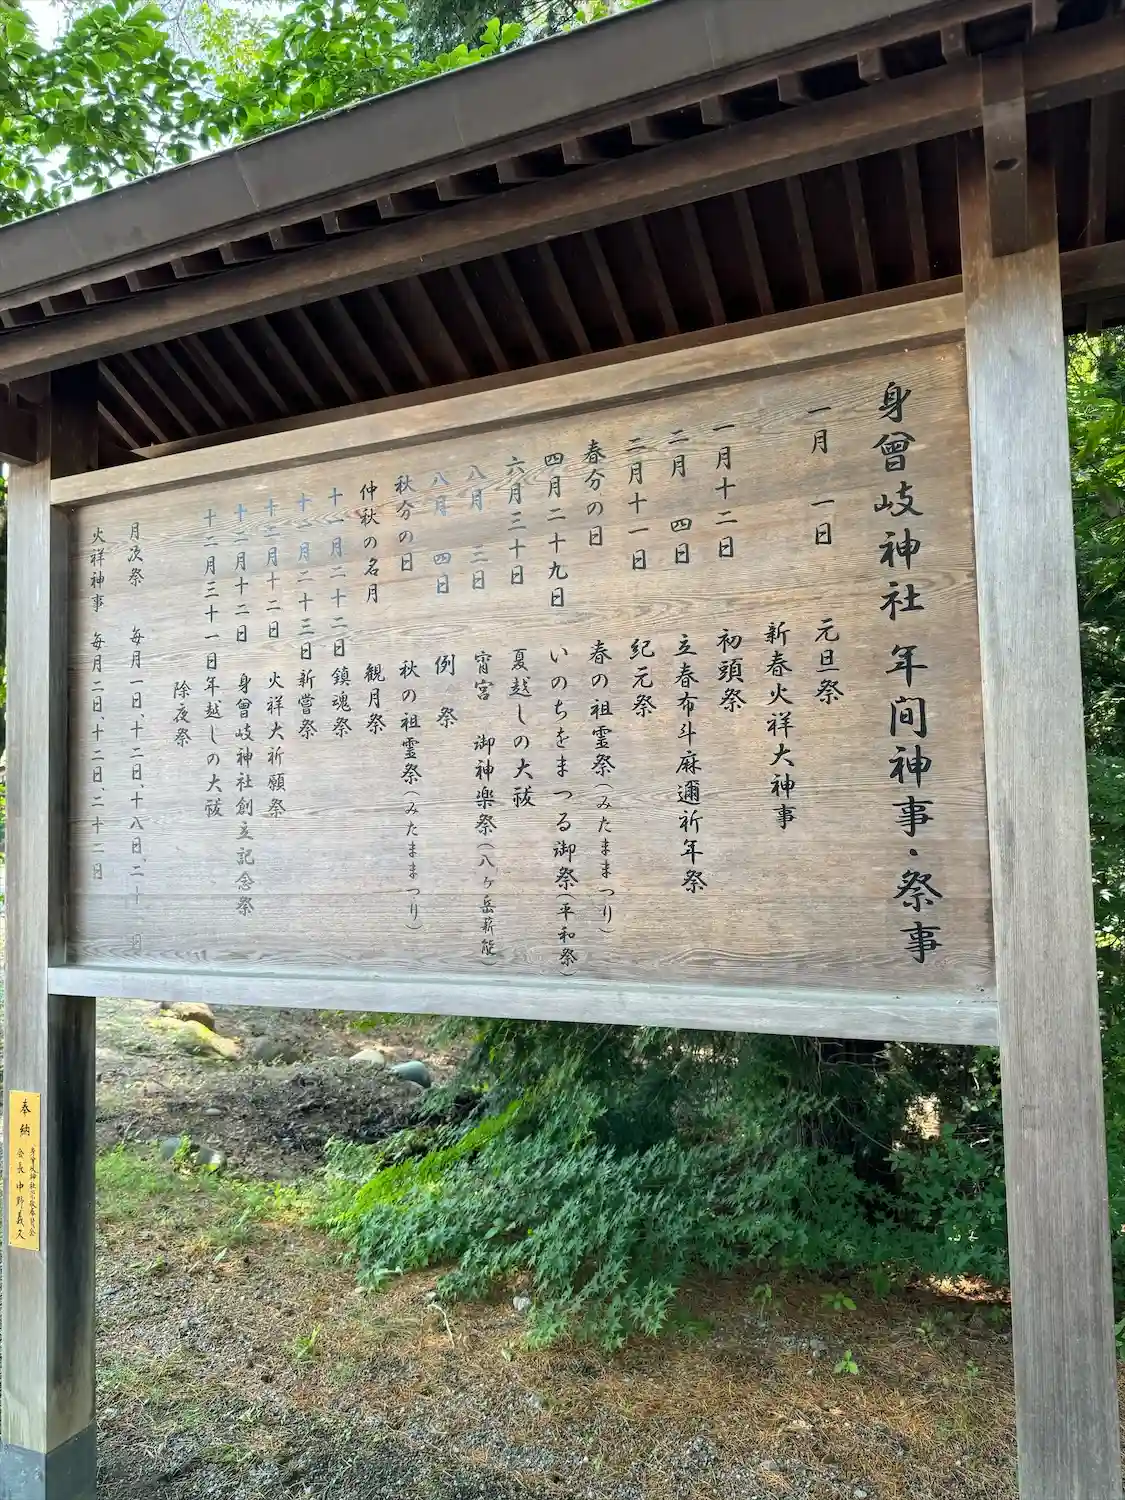 身曾岐神社 年間神事・祭事
一月 一日 元旦祭
新春火祥大神事
一月十二日 初頭祭
二月 四日 立春布斗麻邇祈年祭
二月十一日 紀元祭
春分の日 春の祖霊祭(みたままつり)
四月二十九日 いのちをまつる御祭(平和祭)
六月三十日 夏越しの大祓
八月 三日 宵宮 御神楽祭(八ヶ岳薪能)
八月 四日 例 祭
秋分の日 秋の祖霊祭(みたままつり)
仲秋の名月 観月祭
十一月二十二日 鎮魂祭
十一月二十三日 新嘗祭
十二月十二日 火祥大祈願祭
十二月十二日 身曾岐神社創立記念祭
十二月三十一日 年越しの大祓
除夜祭
月次祭 毎月一日、十二日、十八日、二十 日
火祥神事 毎月二日、十二日、二十二日
奉納
会長 中野義久